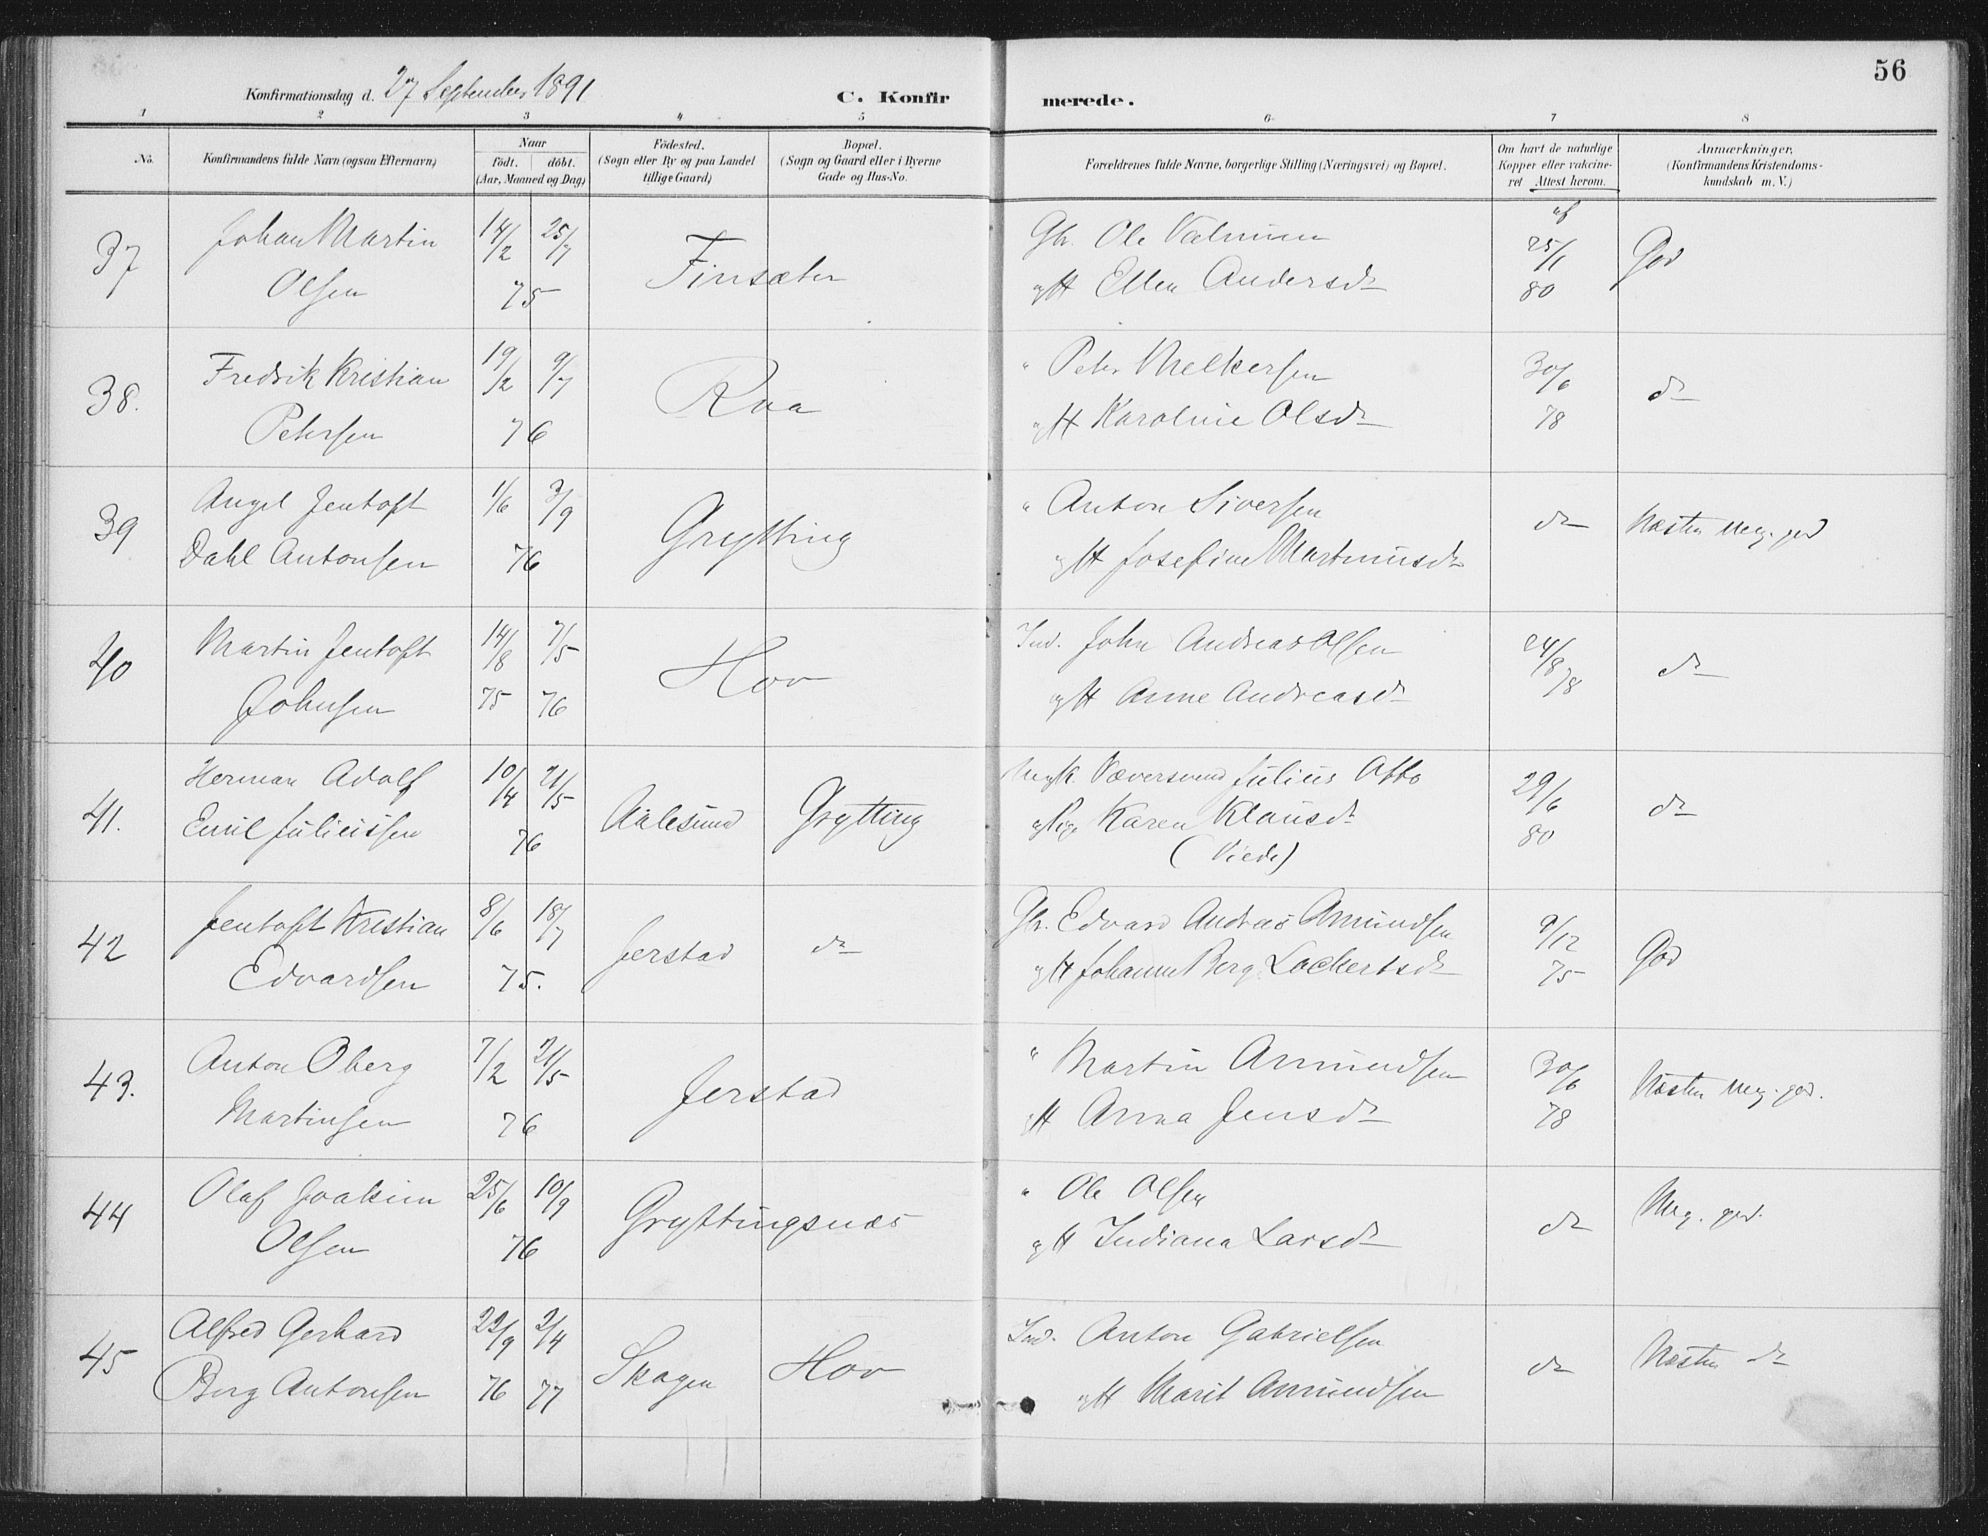 56
Konfirmationsdag d. 27 September 1891
C. Konfirmerede.
1 2 3 4 5 6 7 8
No.
Konfirmandens fulde Navn (ogsaa Efternavn)
Naar
født. døbt.
(Aar, Maaned og Dag)
Fødested.
(Sogn eller By og paa Landet
tillige Gaard)
Bopæl.
(Sogn og Gaard eller i Byerne
Gade og Hus-No.
Forældrenes fulde Navne, borgerlige Stilling (Næringsvei) og Bopæl.
Om havt de naturlige
Kopper eller vakcine-
ret Attest herom.
Anmærkninger.
(Konfirmandens Kristendoms-
kundskab m. V.)
37 Johan Martin 14/2 25/7 Finsæter Gbr. Ole 25/1 God
Olsen 75 og H Ellen Andersdr 80
38. Fredrik Kristian 19/2 9/7 Raa " Peter Melkersen 30/6 dr
Petersen 76 og H Karoline Olsdr 78
39 Angel Jentoft 1/6 3/9 Grytting " Anton Siversen dr Næsten Meg. god
Dahl Antonsen 76 og H Josefine Martinusdr
40 Martin Jentoft 14/8 7/5 Hov Ind. John Andreas Olsen 24/8 78 dr
Johnsen 75 76 og H Anne Andreasdr
41. Herman Adolf 10/4 21/5 Aalesund Grytting Ungk. Julius Otto 29/6 dr
Emil Juliussen 76 og Pige Karen Klausdr 80
(Viede)
42 Jentoft Kristian 8/6 18/7 Jerstad dr Gbr. Edvard Andreas Amundsen 9/12 God
Edvardsen 75. og H Johanna Berg Lockertsdr 75
43. Anton Oberg 7/2 21/5 Jerstad " Martin Amundsen 30/6 Næsten Meg. god.
Martinsen 76 og H Anna Jensdr 78
44 Olaf Joakim 25/6 10/9 Gryttingsnæs " Ole Olsen dr Meg. god.
Olsen 76 og H Indiana Larsdr
45 Alfred Gerhard 22/9 2/4 Skagen Hov Ind. Anton Gabrielsen dr Næsten dr
Berg Antonsen 76 77 og H Marit Amundsen